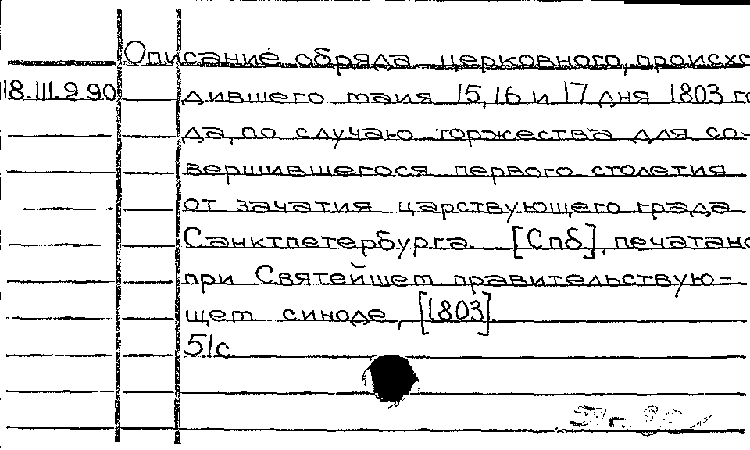 Описание обряда церковного, происхо
18.III.9.90 дившего маия 15, 16 и 17 дня 1803 го
да, по случаю торжества для со-
вершившегося первого столетия
от зачатия царствующего града
Санктпетербурга. [Спб], печатано
при Святейшем правительствую-
щем синоде, [1803].
51с